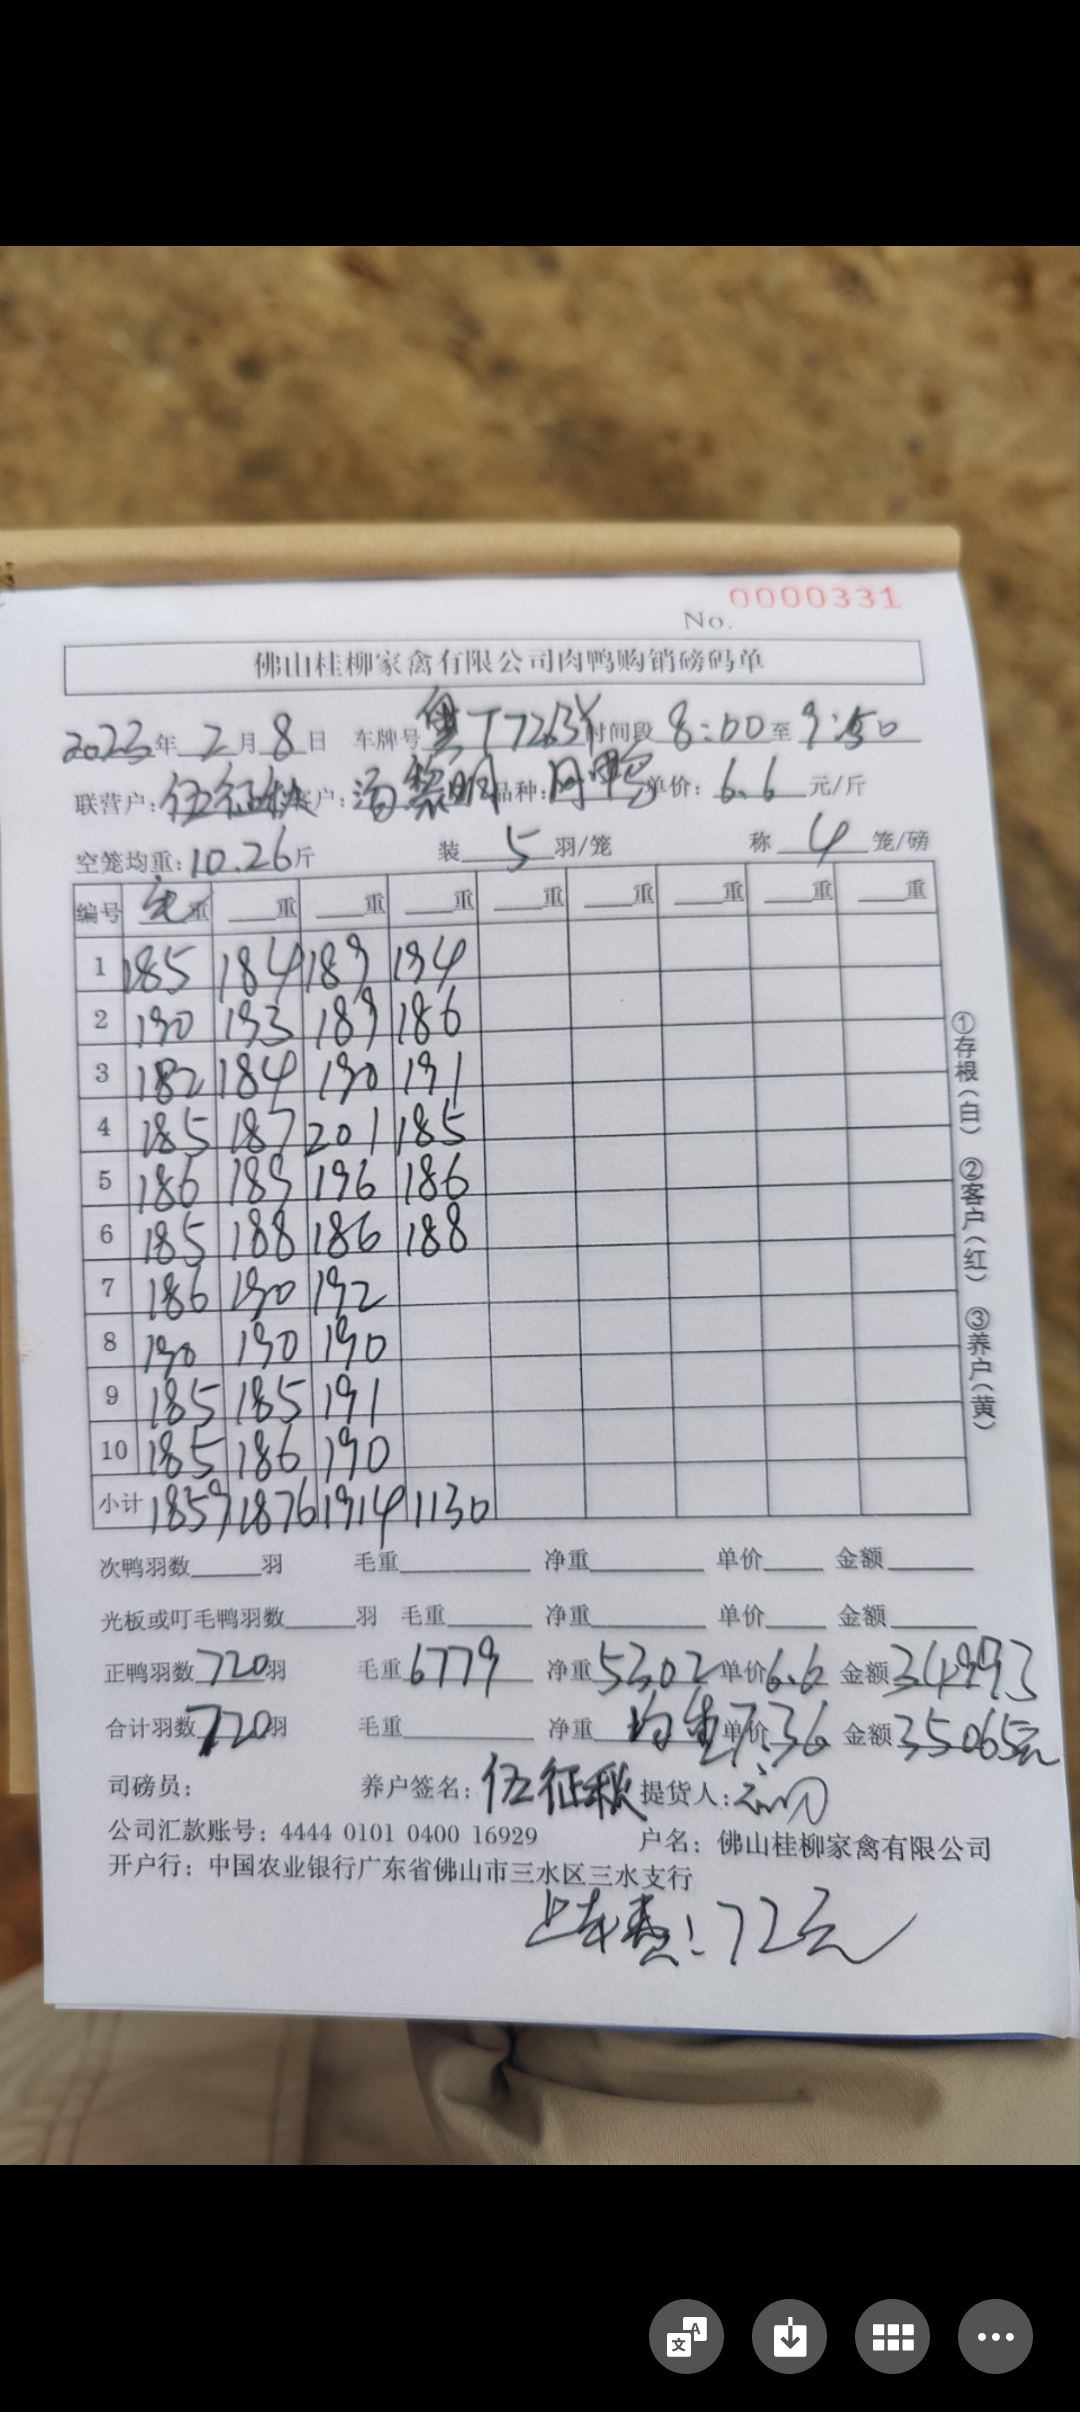 0000331
No.
佛山桂柳家禽有限公司肉鸭购销磅码单
2023年 2月 8日 车牌号 粤T7263Y 时间段 8:00至 9:50
联营户: 伍征秋 客户: 汤黎明 品种: 肉鸭 单价: 6.6 元/斤
空笼均重: 10.26斤 装 5 羽/笼 称 4 笼/磅
编号 毛重 重 重 重 重 重 重 重 重
1 185 184 189 194
2 190 193 189 186
3 182 184 190 191
4 185 187 201 185
5 186 189 196 186
6 185 188 186 188
7 186 190 192
8 190 190 190
9 185 185 191
10 185 186 190
小计 1859 1876 1914 1130
①存根(白) ②客户(红) ③养户(黄)
次鸭羽数 羽 毛重 净重 单价 金额
光板或叮毛鸭羽数 羽 毛重 净重 单价 金额
正鸭羽数 720羽 毛重 6779 净重 5302 单价 6.6 金额 34993
合计羽数 720羽 毛重 净重 均重 单价 7.36 金额 35065元
司磅员: 养户签名: 伍征秋 提货人:
公司汇款账号: 4444 0101 0400 16929 户名: 佛山桂柳家禽有限公司
开户行: 中国农业银行广东省佛山市三水区三水支行
上车费: 72元